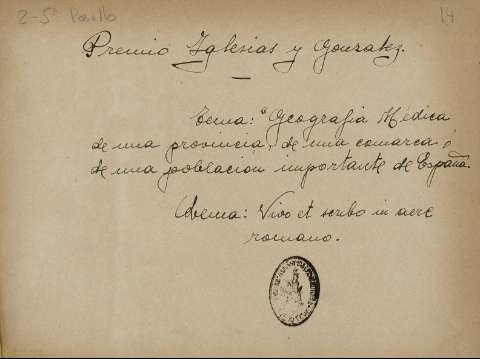 2-5ª Pasillo
14
Premio Iglesias y Gonzalez.
Tema: "Geografia Médica
de una provincia, de una comarca ó
de una población importante de España.
Lema: Vivo et scribo in aere
romano.